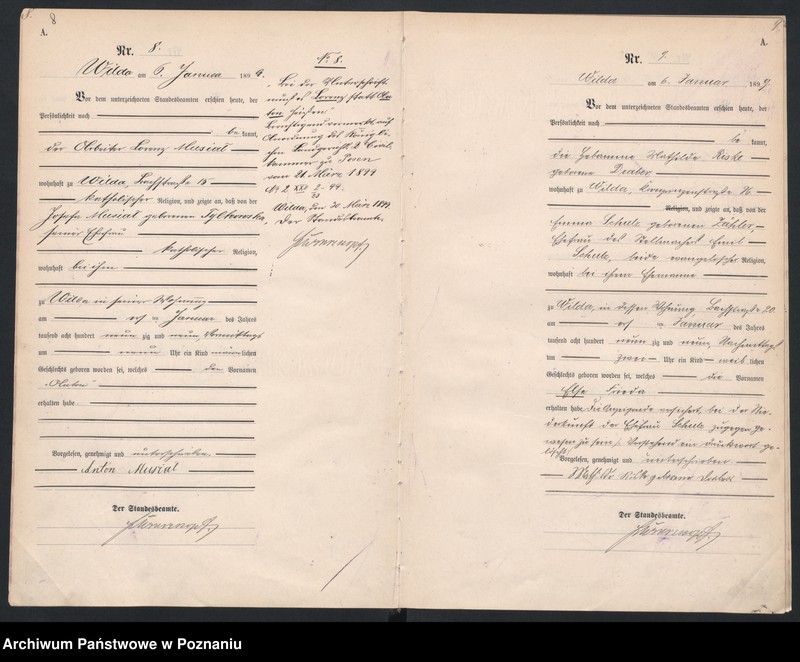 8
A.
Nr. 8.
Wilda am 6. Januar 1899.
Vor dem unterzeichneten Standesbeamten erschien heute, der
Persönlichkeit nach
be kannt,
der Arbeiter Lorenz Musial
wohnhaft zu Wilda, Bachstraße 15
katholischer Religion, und zeigte an, daß von der
Josefa Musial geborenen
seiner Ehefrau
katholischer Religion,
wohnhaft bei ihm
zu Wilda in seiner Wohnung
am Januar des Jahres
tausend acht hundert neun zig und neun Vormittags
um neun Uhr ein Kind männlichen
Geschlechts geboren worden sei, welches den Vornamen
Anton
erhalten habe.
Vorgelesen, genehmigt und unterschrieben.
Anton Musial
Der Standesbeamte.
No 8.
Bei der Unterschrift
muß es Lorenz statt An
ton heißen
Berichtigend vermerkt auf
Anordnung des Königli
chen Landgerichts 2 Civil
kammer zu Posen
vom 21 März 1899
Wilda, den 30. März 1899
Der Standesbeamte
9.
A.
Nr. 9.
Wilda am 6. Januar 1899
Vor dem unterzeichneten Standesbeamten erschien heute, der
Persönlichkeit nach
be kannt,
die Hebamme Mathilde Riske
geborene
wohnhaft zu Wilda, Kronprinzenstraße 76
Religion, und zeigte an, daß von der
Emma Schulz geborenen
Ehefrau des Stellmachers Emil
Schulz, beide evangelischer Religion,
wohnhaft bei ihrem Ehemanne
zu Wilda, in dessen Wohnung Bachstraße 20
am Januar des Jahres
tausend acht hundert neun zig und neun Nachmittags
um zwei Uhr ein Kind weib lichen
Geschlechts geboren worden sei, welches die Vornamen
Else Frieda
erhalten habe. Die Anzeigende versichert, bei der Nie-
derkunft der Ehefrau Schulz zugegen ge-
wesen zu sein. Vorstehend ein Druckwort ge-
löscht.
Vorgelesen, genehmigt und unterschrieben
Mathilde Riske geborene
Der Standesbeamte.
Archiwum Państwowe w Poznaniu